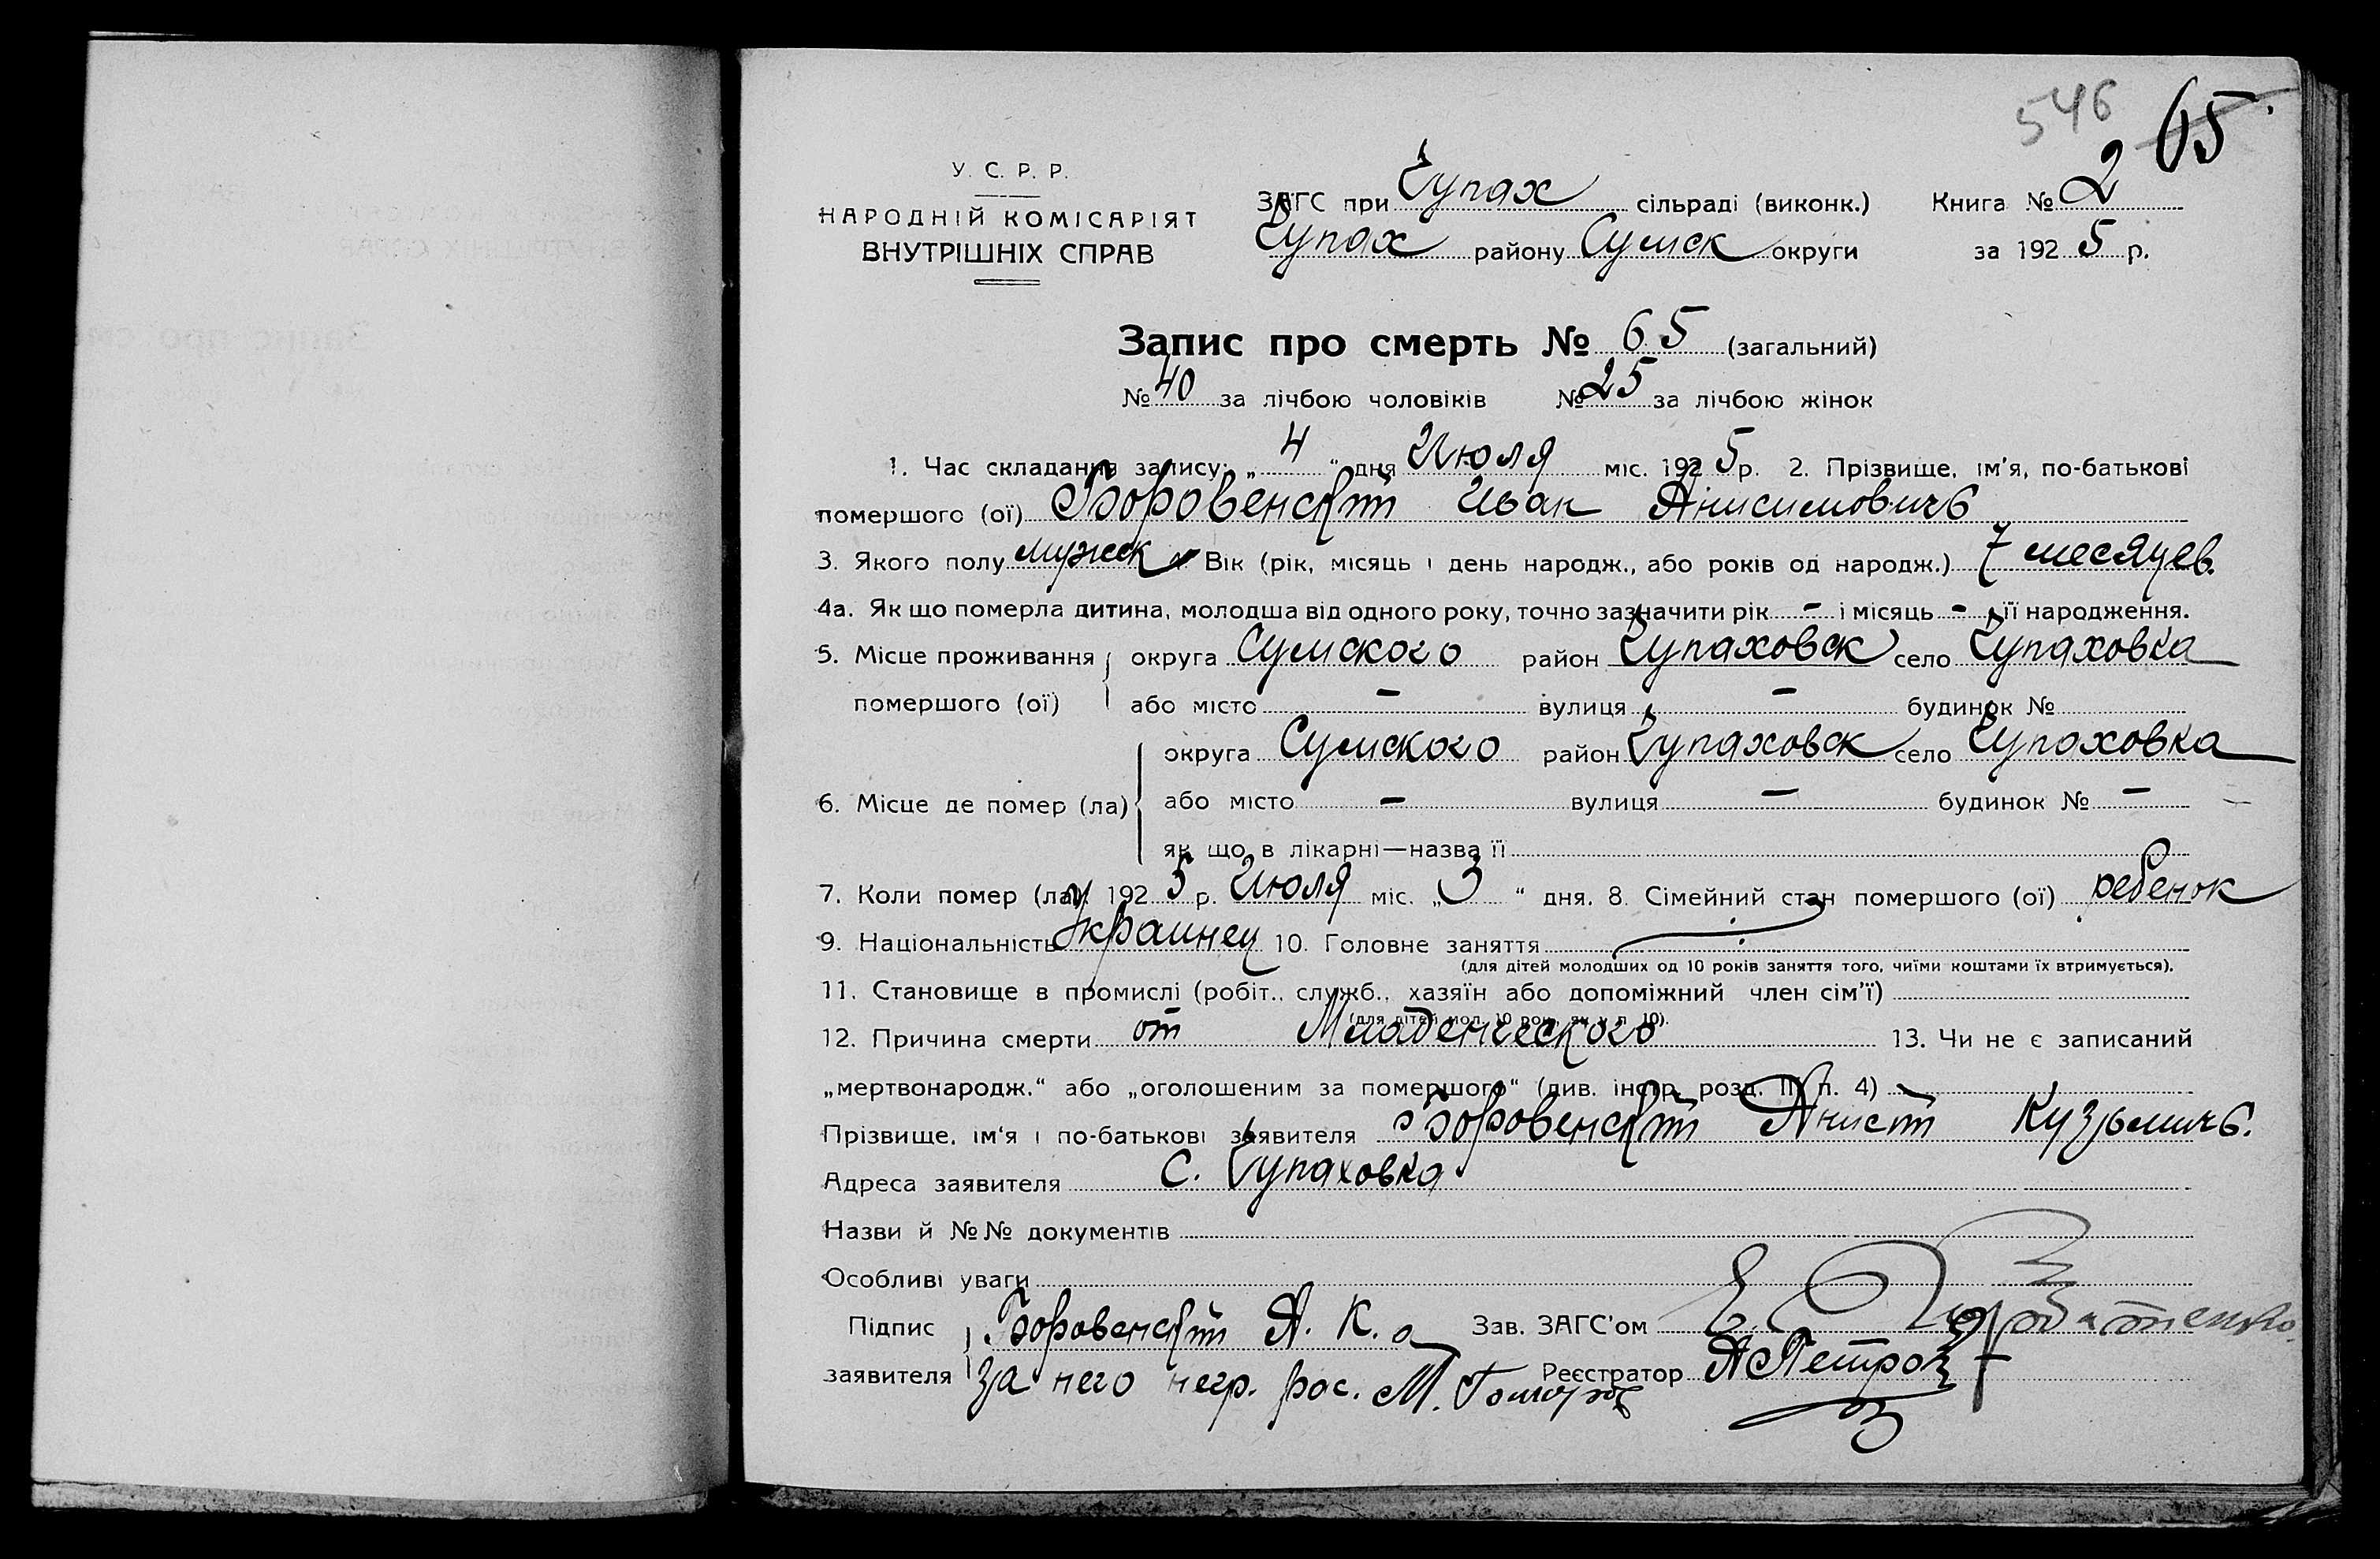 546 65
У. С. Р. Р.
НАРОДНІЙ КОМІСАРІЯТ
ВНУТРІШНІХ СПРАВ
ЗАГС при Чупах сільраді (виконк.) Книга № 2
Чупах району Сумск округи за 1925 р.
Запис про смерть № 65 (загальний)
№ 40 за лічбою чоловіків № 25 за лічбою жінок
1. Час складання запису: „4“ дня Июля міс. 1925 р. 2. Прізвище, ім'я, по-батькові
помершого (ої) Боровенскът Иван Анисимовичъ
3. Якого полу мужск 4. Вік (рік, місяць і день народж., або років од народж.) 7 месяцев.
4а. Як що померла дитина, молодша від одного року, точно зазначити рік – і місяць – її народження.
5. Місце проживання округа Сумского район Чупаховск село Чупаховка
помершого (ої) або місто – вулиця – будинок №
округа Сумского район Чупаховск село Чупаховка
6. Місце де помер (ла) або місто – вулиця – будинок № –
як що в лікарні—назва її
7. Коли помер (ла): 1925 р. Июля міс. „3“ дня. 8. Сімейний стан помершого (ої) ребенок
9. Національність Украинец 10. Головне заняття
(для дітей молодших од 10 років заняття того, чиїми коштами їх втримується).
11. Становище в промислі (робіт., служб., хазяїн або допоміжний член сім'ї)
(для дітей мол. 10 рок. як у п. 10).
12. Причина смерти от Младенческого 13. Чи не є записаний
„мертвонародж.“ або „оголошеним за помершого“ (див. інстр. розд. III п. 4)
Прізвище, ім'я і по-батькові заявителя Боровенскът Анист Кузьмичъ.
Адреса заявителя с. Чупаховка
Назви й №№ документів
Особливі уваги
Підпис Боровенскът А. К. а Зав. ЗАГС'ом Е.
заявителя За него негр. рос. М. Реєстратор АПетров